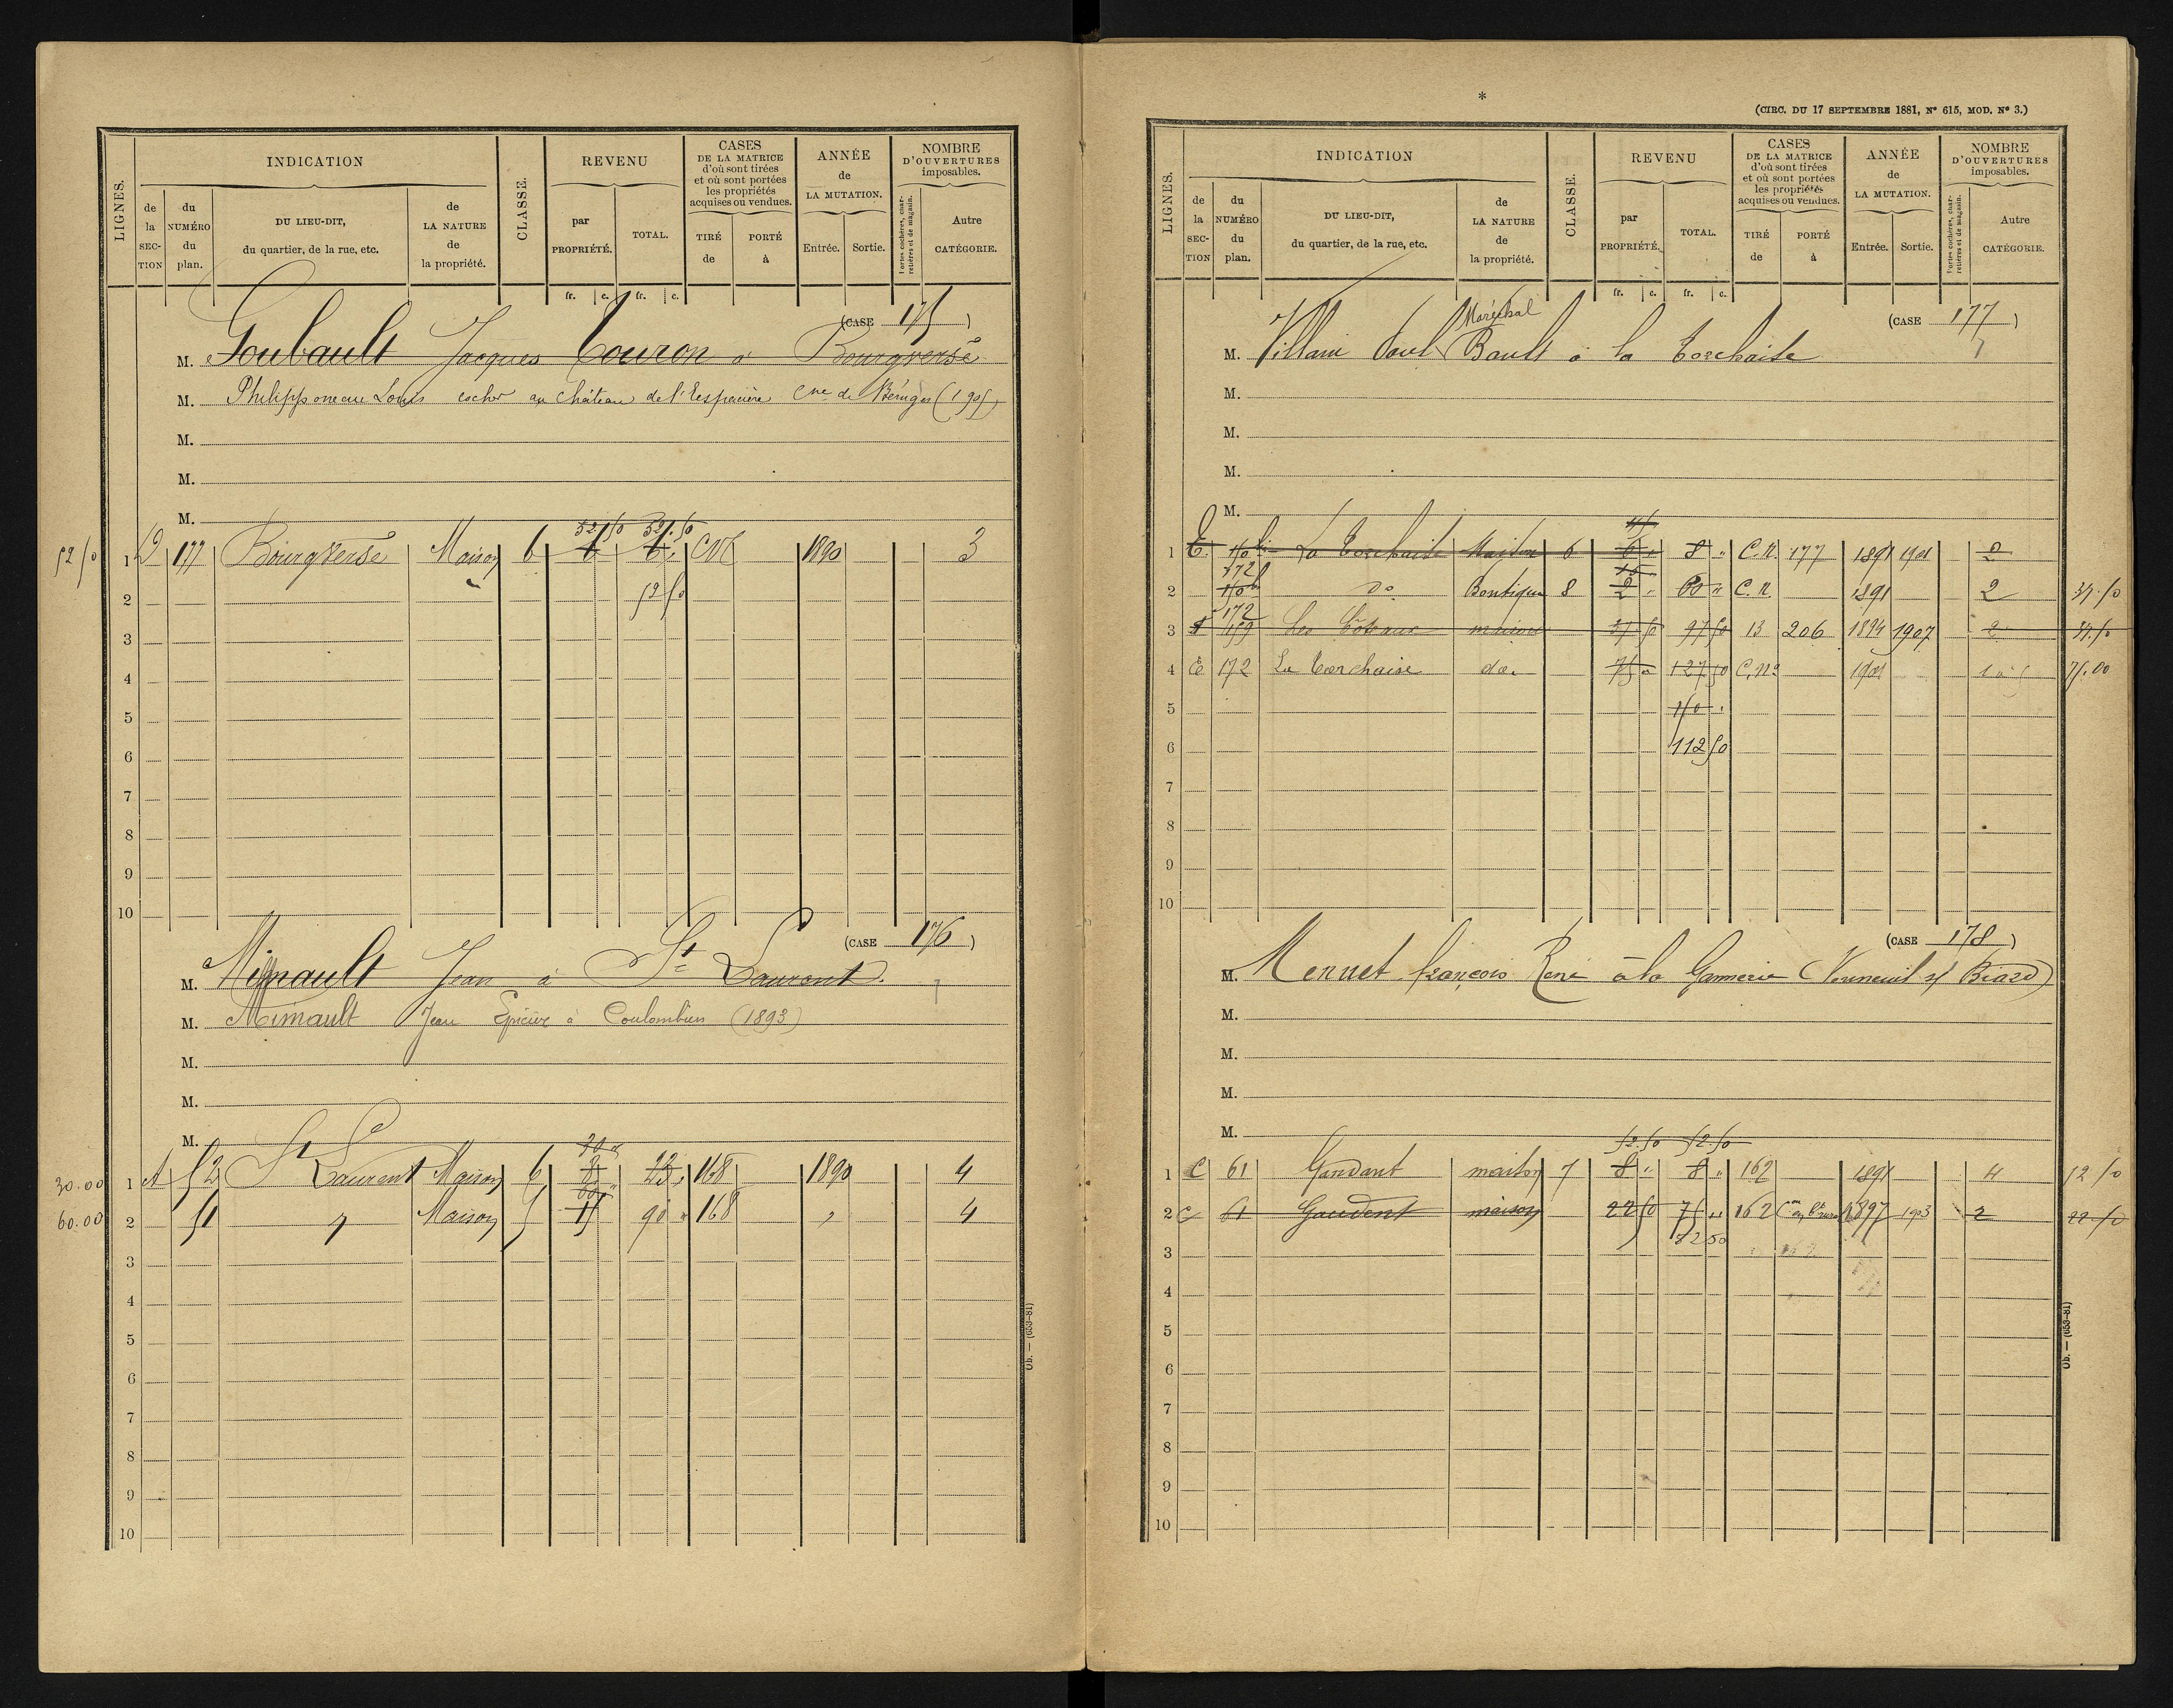 LIGNES.
INDICATION
de la SECTION
du NUMÉRO du plan.
DU LIEU-DIT, du quartier, de la rue, etc.
de LA NATURE de la propriété.
CLASSE.
REVENU
par PROPRIÉTÉ.
TOTAL.
CASES DE LA MATRICE d'où sont tirées et où sont portées les propriétés acquises ou vendues.
TIRÉ de
PORTÉ à
ANNÉE de LA MUTATION.
Entrée. Sortie.
NOMBRE D'OUVERTURES imposables.
Portes cochères, charretières et de magasin.
Autre CATÉGORIE.
fr. c. fr. c.
(CASE 175)
M. Goubault Jacques Couron à Bourgversé
M. Philipponeau Louis cocher au château de l'Espinière Cne de Béruges (1905)
M.
M.
M.
52 50 52.50
52 50 1 D 177 Bourgversé Maison 6 6 6 CN 1890 3
2 52 50
3
4
5
6
7
8
9
10
(CASE 176)
M. Mignault Jean à St Laurent.
M. Mimault Jean Epicier à Coulombiers (1893)
M.
M.
M.
30
30.00 1 A 52 St Laurent Maison 6 8 23 168 1890 4
60
60.00 2 51 " Maison 5 15 90 " 168 " 4
3
4
5
6
7
8
9
10
Ob. — (653-81)
*
(CIRC. DU 17 SEPTEMBRE 1881, N° 615, MOD. N° 3.)
LIGNES.
INDICATION
de la SECTION
du NUMÉRO du plan.
DU LIEU-DIT, du quartier, de la rue, etc.
de LA NATURE de la propriété.
CLASSE.
REVENU
par PROPRIÉTÉ.
TOTAL.
CASES DE LA MATRICE d'où sont tirées et où sont portées les propriétés acquises ou vendues.
TIRÉ de
PORTÉ à
ANNÉE de LA MUTATION.
Entrée. Sortie.
NOMBRE D'OUVERTURES imposables.
Portes cochères, charretières et de magasin.
Autre CATÉGORIE.
fr. c. fr. c.
(CASE 177)
Maréchal
M. Villain Paul Bault à la Torchaise
M.
M.
M.
M.
1 E. La Torchaise Maison 6 6 " 8 " C.N. 177 1891 1901 2
172
2 do Boutique 8 2 " 60 " C.N. 1891 2 37.50
172
3 159 Les Côteaux maison 37 50 97 50 13 206 1894 1907 2 37.50
4 E 172 La Torchaise do. 75 " 127 50 C.No 1901 75.00
5 150
6 112 50
7
8
9
10
(CASE 178)
M. Mennet françois René à la Gannerie (Vouneuil s/ Biard)
M.
M.
M.
M.
52.50 52.50
1 C 61 Gandant maison 7 8 " 8 " 162 1891 4 52 50
2 C 61 Gaudent maison 22 50 75 " 162 1897 1903 2 22 50
3 52 50
4
5
6
7
8
9
10
Ob. — (653-81)